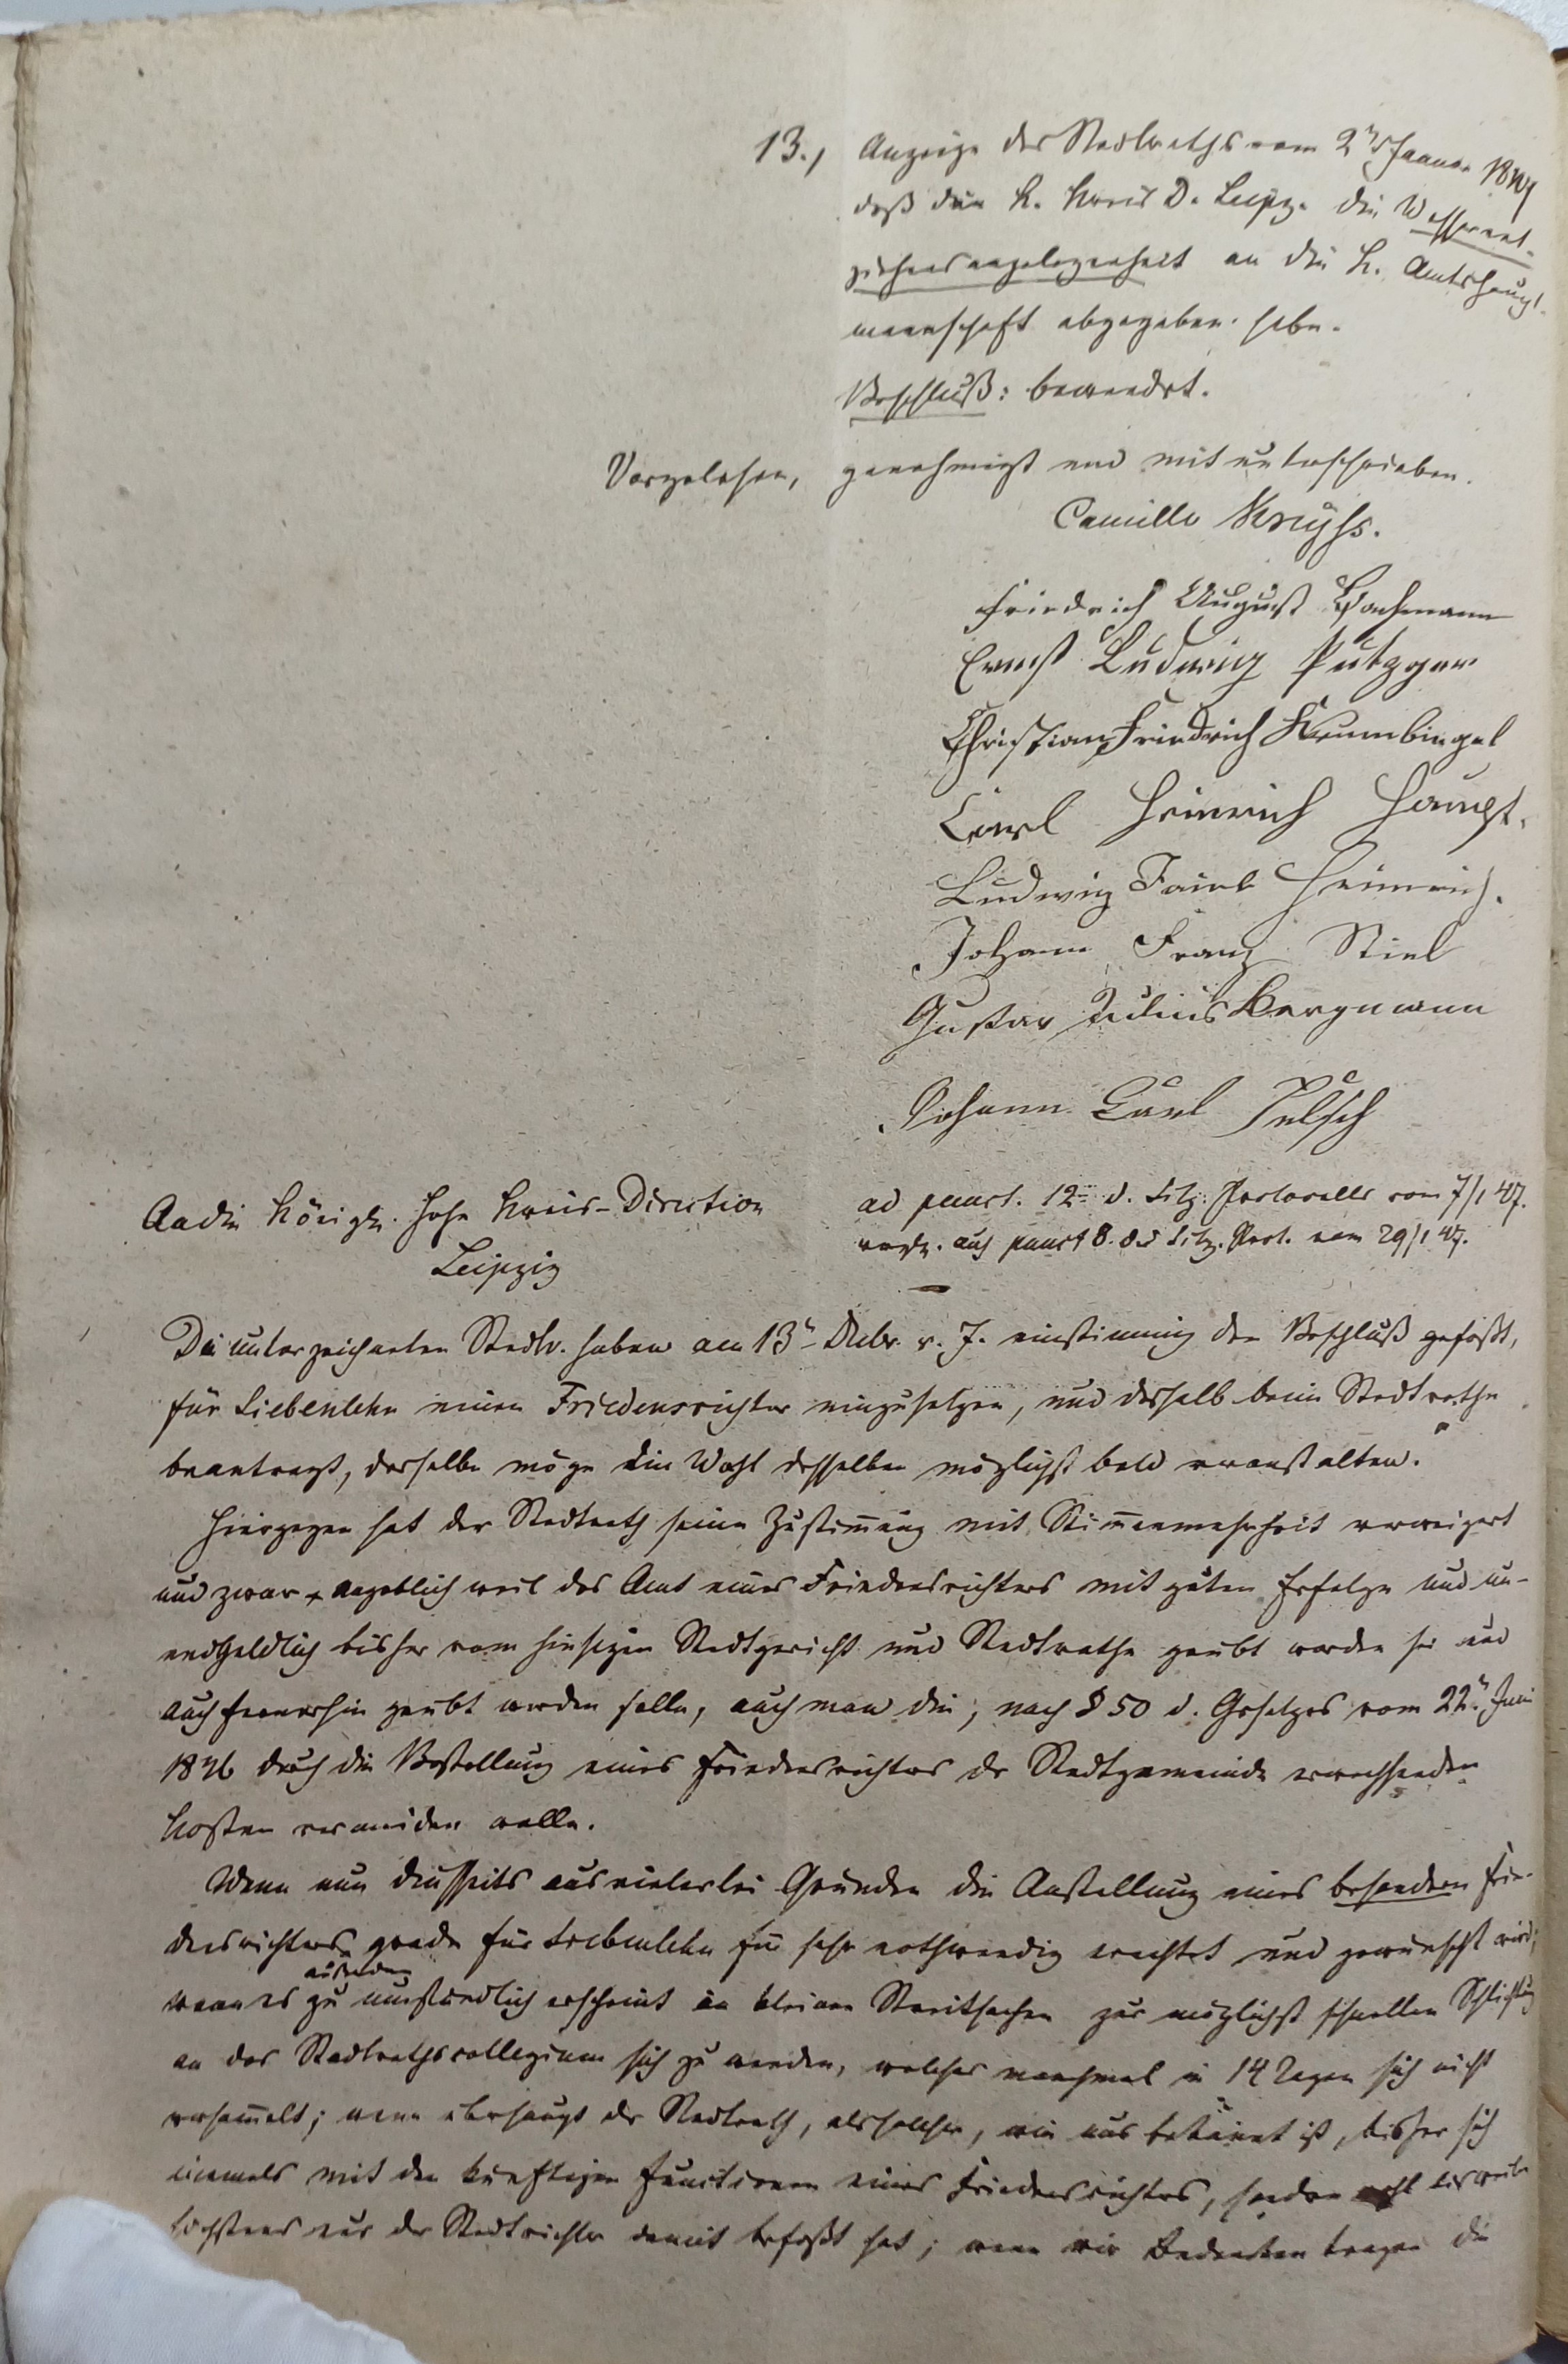 13., Anzeige des Stadtraths vom 2n Januar 1847
daß die K. Kreis D. Leipz. die Wasserent-
ziehensangelegenheit an die K. Amtshaupt-
mannschaft abgegeben habe.
Beschluß: bewendet.
Vorgelesen, genehmigt und mit unterschrieben.
Camillo
Friedrich August Bachmann
Ernst Ludwig Putzger
Christian Friedrich Krumbiegel
Carl Heinrich Haupt.
Ludwig Heinrich.
Johann Franz Stiel
Gustav Julius Bergmann
Johann Carl
An die Königl. hohe Kreis-Direction
Leipzig
ad punct. 12 d. Sitz. Protocolls vom 7/1 47.
vergl. auch punct 8. des Sitz. Prot. vom 29/1 47.
Die unterzeichneten Stadtv. haben am 13n Decbr. v. J. einstimmig den Beschluß gefaßt,
für Siebenlehn einen Friedensrichter einzusetzen, und deshalb beim Stadtrathe
beantragt, derselbe möge die Wahl desselben möglichst bald veranstalten.
Hiergegen hat der Stadtrath seine Zustimmung mit Stimmenmehrheit verweigert
und zwar angeblich weil das Amt eines Friedensrichters mit guten Erfolge und un-
endgeldlich bisher vom hiesigen Stadtgericht und Stadtrathe geübt worden sei und
auch fernerhin geübt werden solle, auch man die, nach § 50 d. Gesetzes vom 22n Juni
1846 durch die Bestellung eines Friedensrichters der Stadtgemeinde erwachsenden
Kosten vermeiden wolle.
Wenn nun diesseits aus vielerlei Gründen die Anstellung eines besondern Frie-
densrichters grade für Siebenlehn für sehr nothwendig erachtet und gewünscht wird;
außerdem
wenn es zu umständlich erscheint in kleinen Streitsachen zur möglichst schnellen Schlichtung
an das Stadtrathscollegium sich zu wenden, welches manchmal in 14 Tagen sich nicht
versammelt; wenn überhaupt der Stadtrath, als solcher, wie uns bekannt ist, bisher sich
niemals mit den künftigen Functionen eines Friedensrichters, sondern bisweilen
höchstens nur der Stadtrichter damit befaßt hat; wenn wir Bedenken tragen die